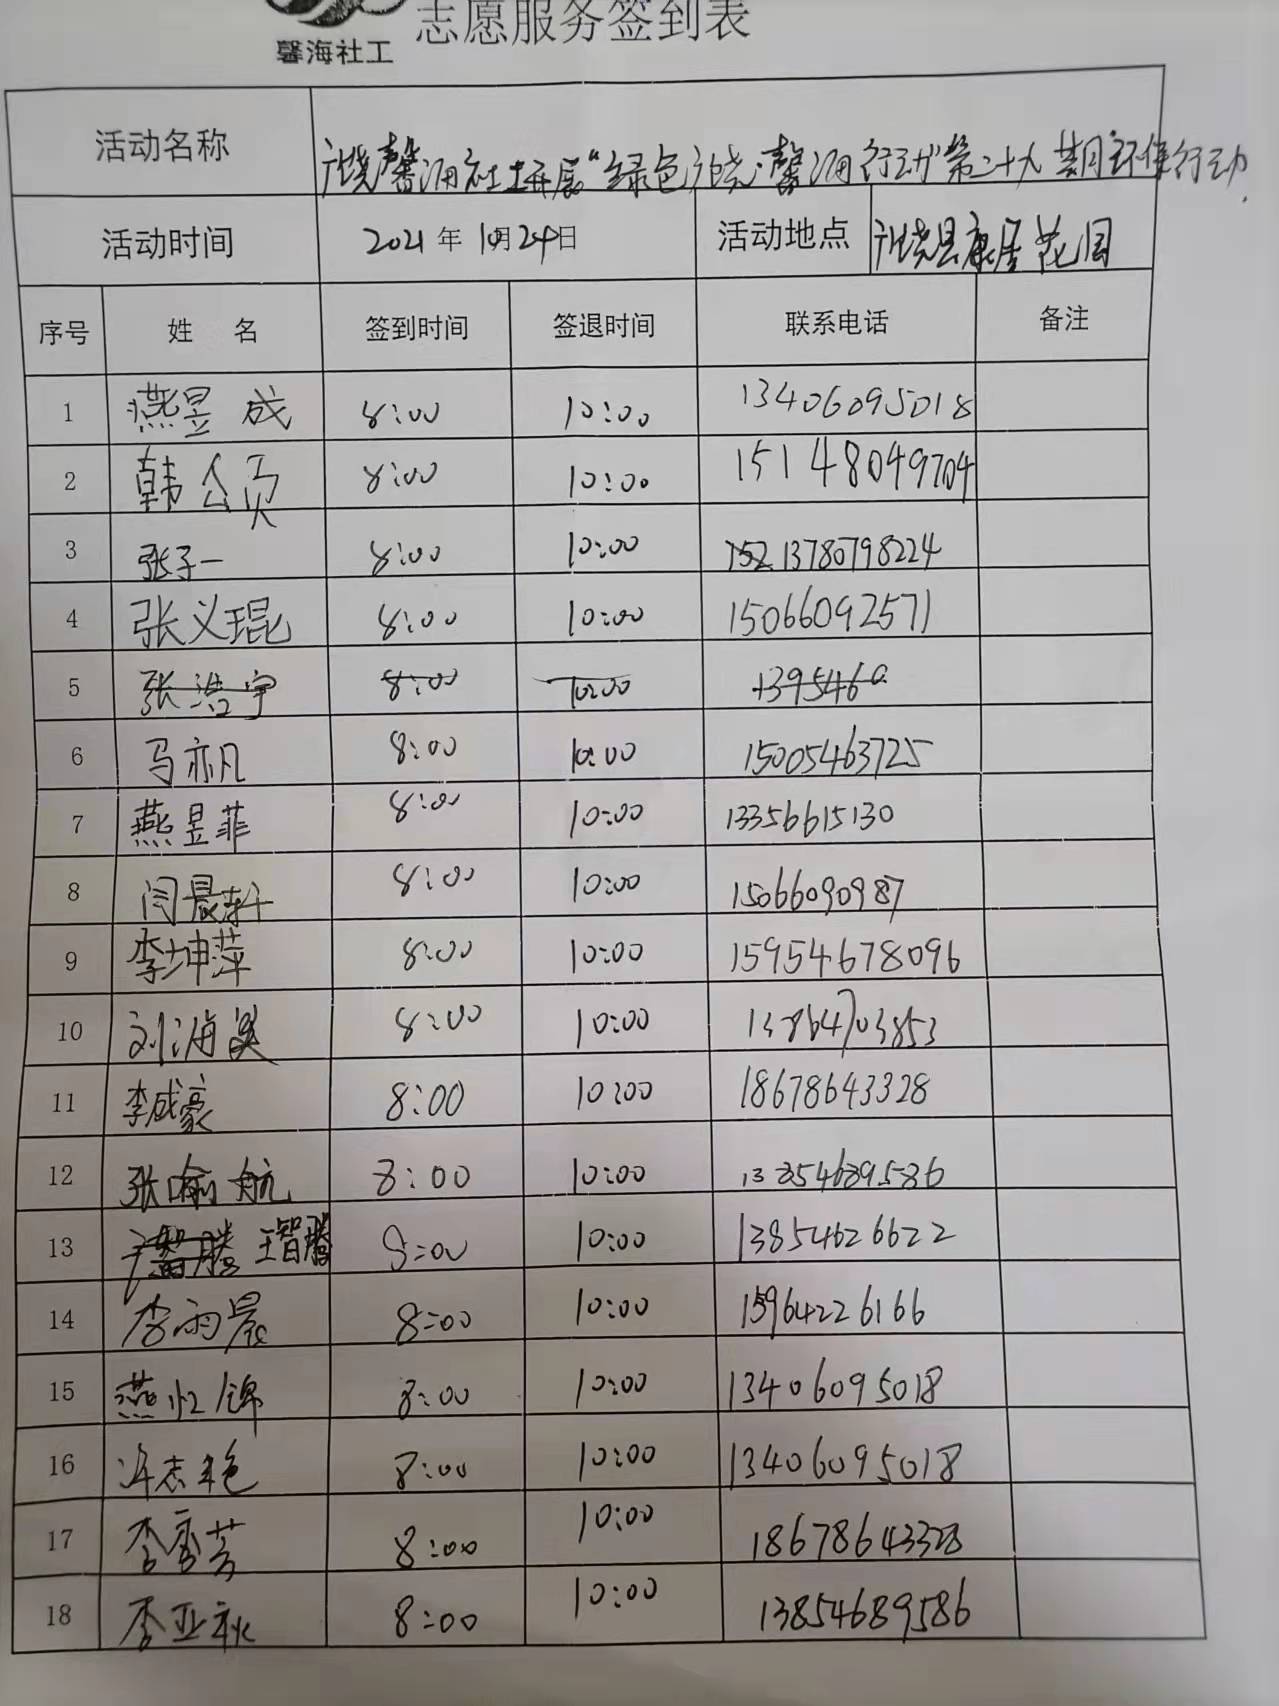 志愿服务签到表
馨海社工
活动名称 广饶馨海社工开展“绿色广饶·馨海行动”第二十九期环保行动
活动时间 2021年10月24日 活动地点 广饶县康居花园
序号 姓 名 签到时间 签退时间 联系电话 备注
1 燕昱成 8:00 10:00 13406095018
2 韩公页 8:00 10:00 15148049704
3 张子一 8:00 10:00 13780798224
4 张义琨 8:00 10:00 15066092571
5 张浩宇 8:00 10:00 1395460
6 马亦凡 8:00 10:00 15005463725
7 燕昱菲 8:00 10:00 13356615130
8 闫晨轩 8:00 10:00 15066090987
9 李坤萍 8:00 10:00 15954678096
10 刘海昊 8:00 10:00 13864703853
11 李成豪 8:00 10:00 18678643328
12 张喻航 8:00 10:00 13854689586
13 王智腾 8:00 10:00 13854626622
14 李雨晨 8:00 10:00 15964226166
15 燕红锦 8:00 10:00 13406095018
16 许志艳 8:00 10:00 13406095018
17 李秀芳 8:00 10:00 18678643328
18 李亚秋 8:00 10:00 13854689586